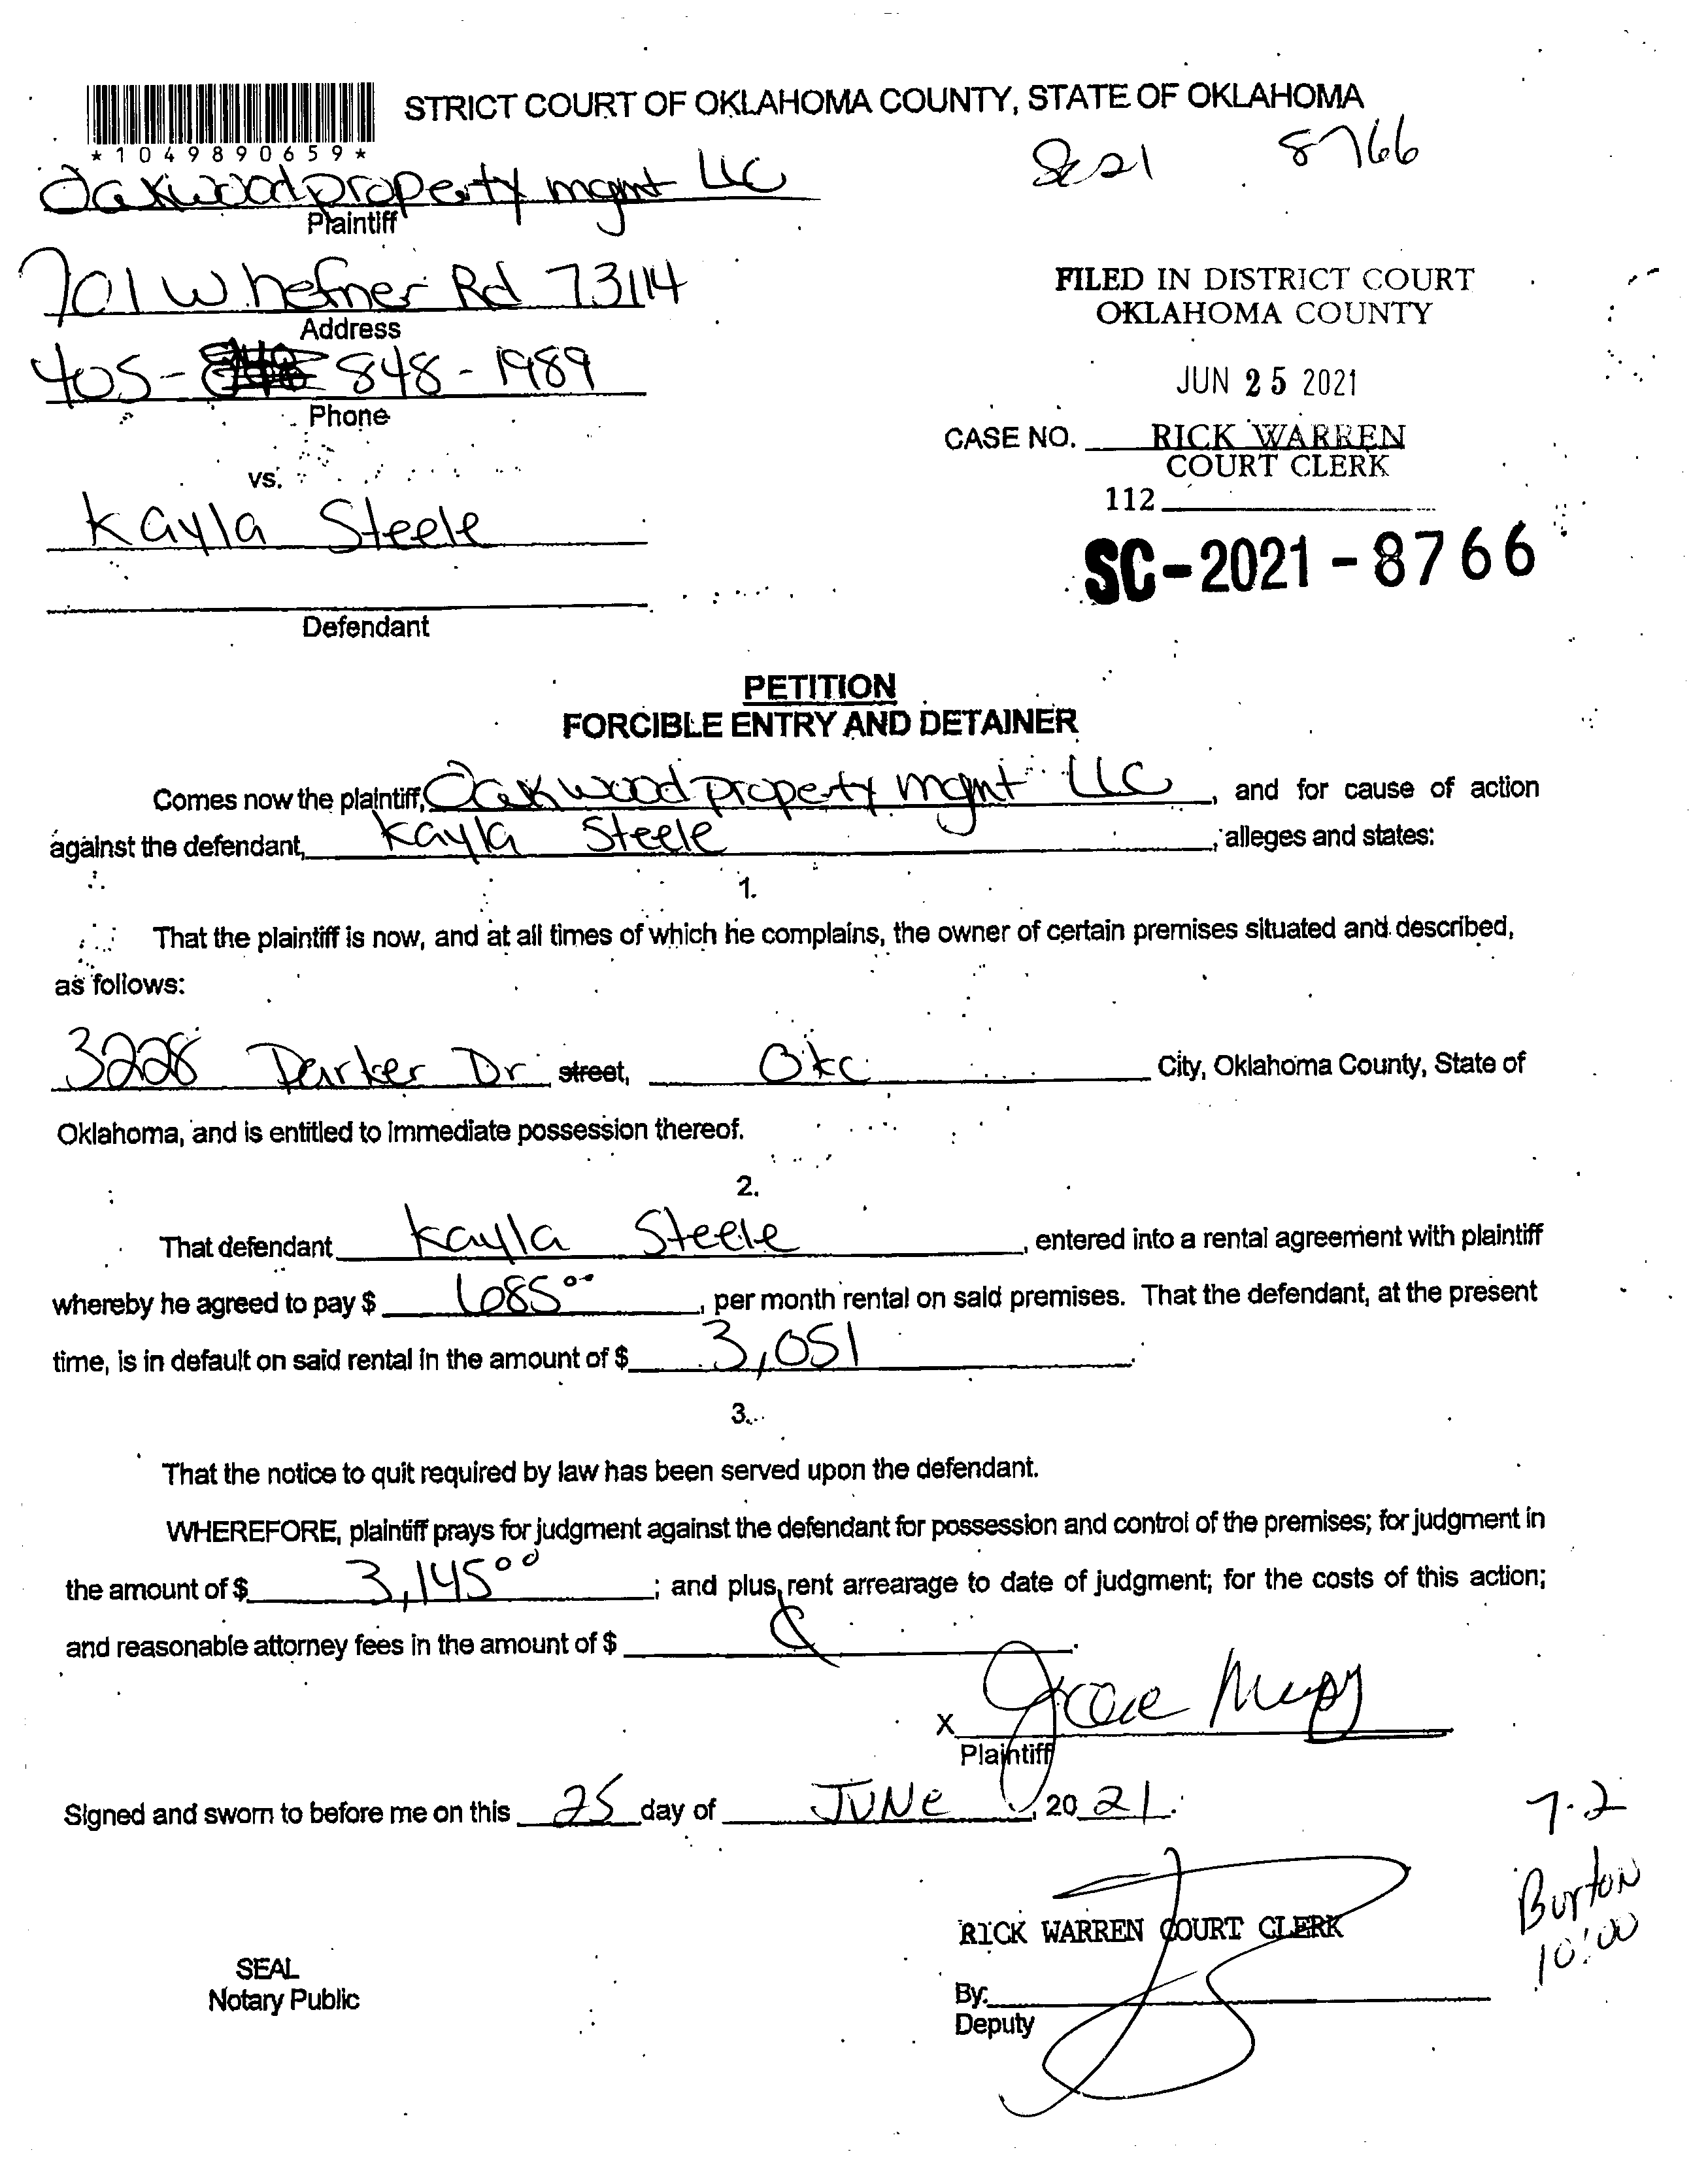 STRICT COURT OF OKLAHOMA COUNTY, STATE OF OKLAHOMA
*1049890659*
SC21 8766
Oakwood property mgmt LLC
Plaintiff
701 W. hefner Rd 73114
Address
405- 848-1989
Phone
FILED IN DISTRICT COURT
OKLAHOMA COUNTY
JUN 25 2021
CASE NO. RICK WARREN
COURT CLERK
112
SC-2021-8766
vs.
Kayla Steele
Defendant
PETITION
FORCIBLE ENTRY AND DETAINER
Comes now the plaintiff, Oakwood property mgmt LLC, and for cause of action
against the defendant, Kayla Steele, alleges and states:
1.
That the plaintiff is now, and at all times of which he complains, the owner of certain premises situated and described,
as follows:
3228 Parker Dr street, Okc City, Oklahoma County, State of
Oklahoma, and is entitled to immediate possession thereof.
2.
That defendant Kayla Steele, entered into a rental agreement with plaintiff
whereby he agreed to pay $ 685.00, per month rental on said premises. That the defendant, at the present
time, is in default on said rental in the amount of $ 3,051.
3.
That the notice to quit required by law has been served upon the defendant.
WHEREFORE, plaintiff prays for judgment against the defendant for possession and control of the premises; for judgment in
the amount of $ 3,145.00; and plus rent arrearage to date of judgment; for the costs of this action;
and reasonable attorney fees in the amount of $
X
Plaintiff
Signed and sworn to before me on this 25 day of JUNe, 2021.
7-2
Burton
10:00
RICK WARREN COURT CLERK
SEAL
Notary Public
By:
Deputy